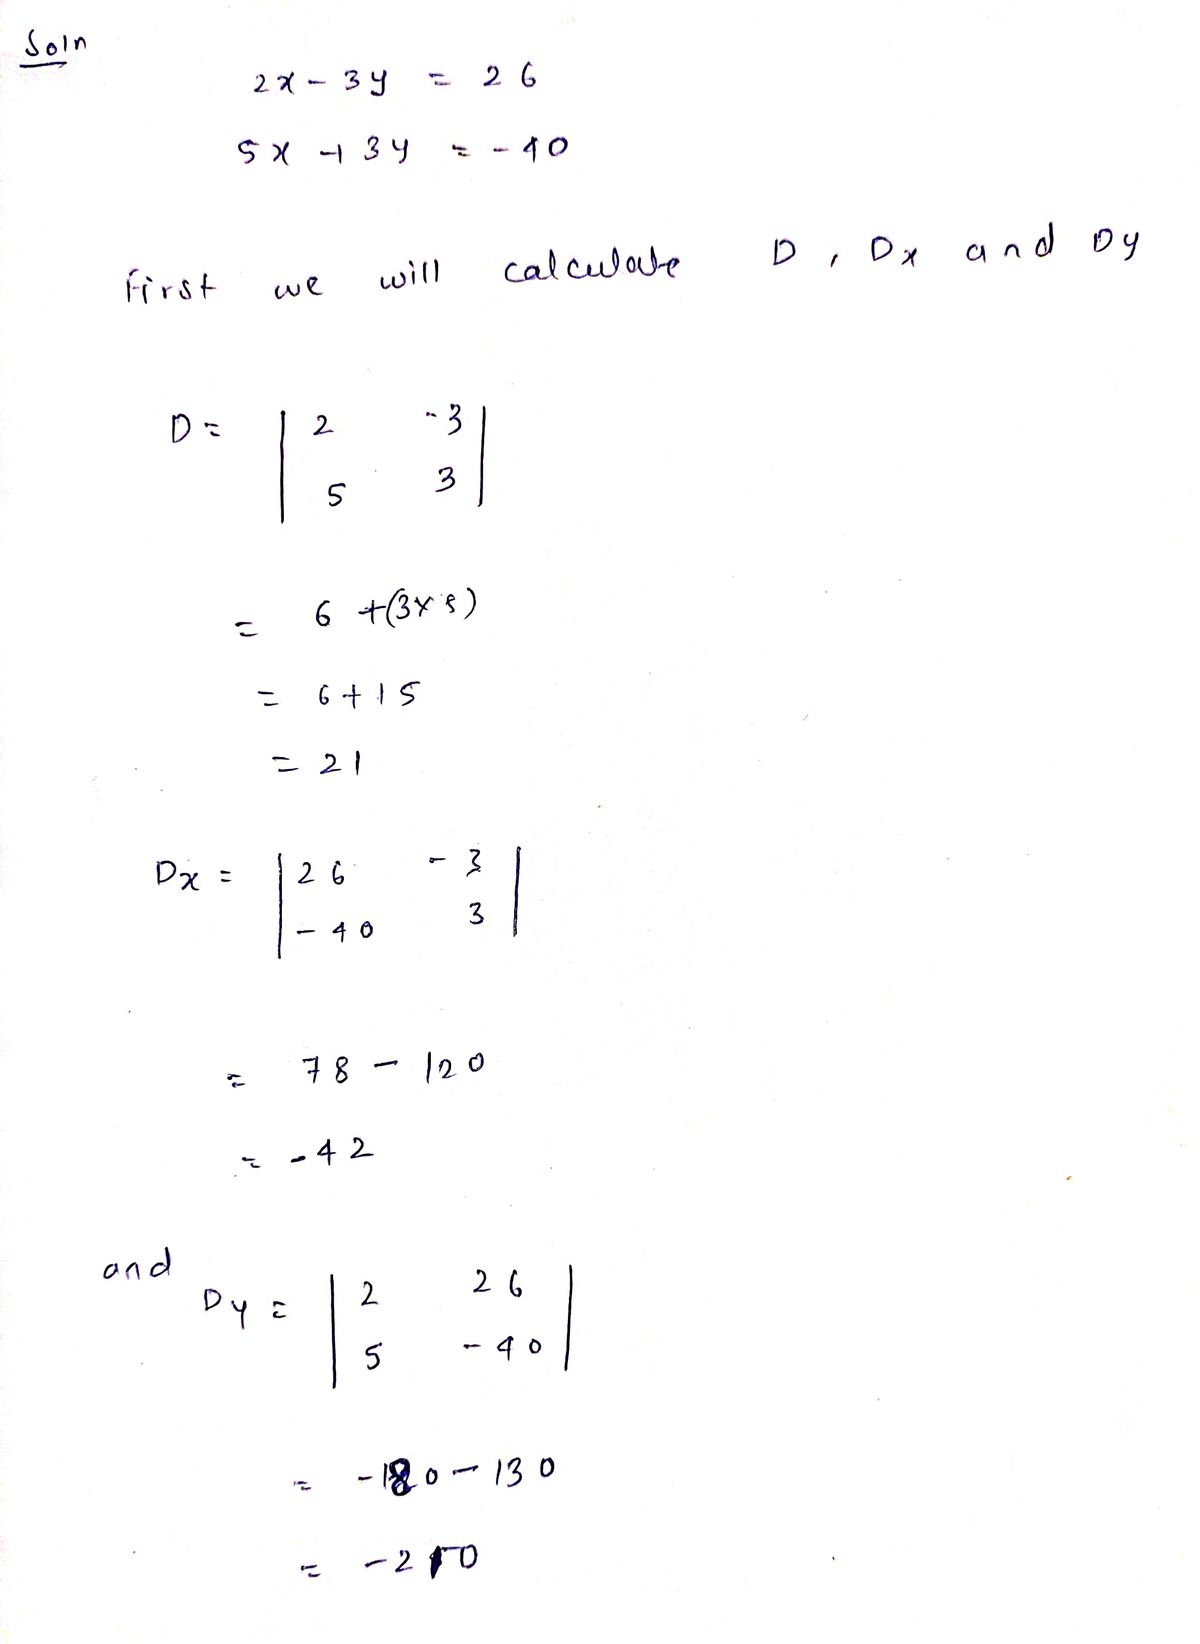 Soln
2x - 3y = 26
5x + 3y = -40
First we will calculate D, Dx and Dy
D = | 2 -3 |
| 5 3 |
= 6 + (3x5)
= 6 + 15
= 21
Dx = | 26 -3 |
| -40 3 |
= 78 - 120
= -42
and
Dy = | 2 26 |
| 5 -40 |
= - 0 - 130
= -210